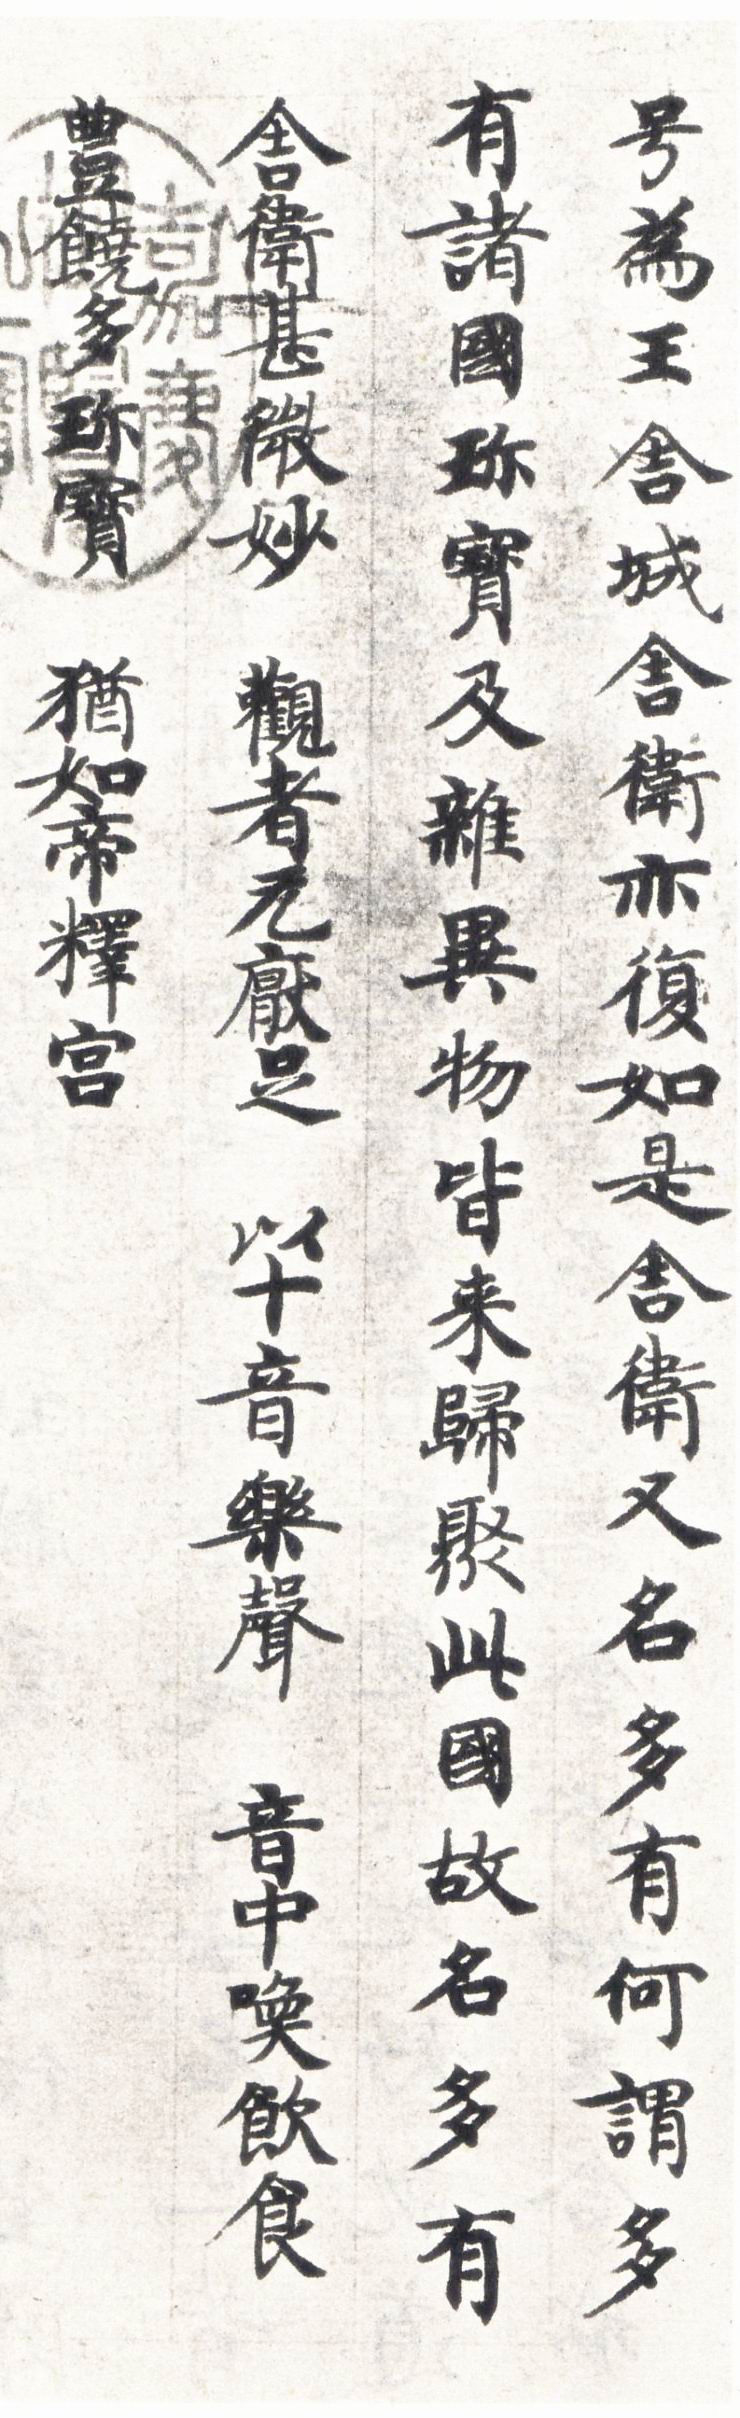 号為王舍城舍衛亦復如是舍衛又名多有何謂多
有諸國珎寶及雜異物皆来歸聚此國故名多有
舍衛甚微妙　觀者无厭足　以十音樂聲　音中喚飲食
豊饒多珎寶　猶如帝釋宫